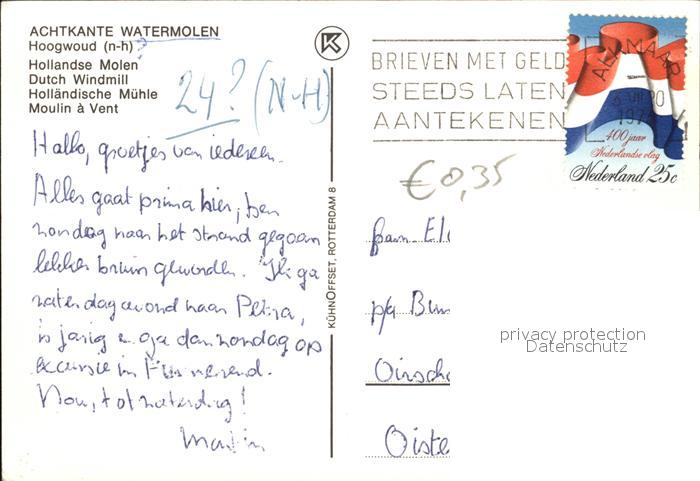 ACHTKANTE WATERMOLEN
Hoogwoud (n-h)
Hollandse Molen
Dutch Windmill
Holländische Mühle
Moulin à Vent
24? (N-H)
Hallo, groetjes van iedereen.
Alles gaat prima hier, ben
zondag naar het strand gegaan
lekker bruin geworden. Ik ga
zaterdagavond naar Petra,
is jarig en ga dan zondag op
excursie in
Nou, tot zaterdag!
Martin
KÜHNOFFSET, ROTTERDAM 8
BRIEVEN MET GELD
STEEDS LATEN
AANTEKENEN
ALKMAAR
400 jaar
Nederlandse vlag
Nederland 25c
€0,35
fam.
p/a
privacy protection
Datenschutz